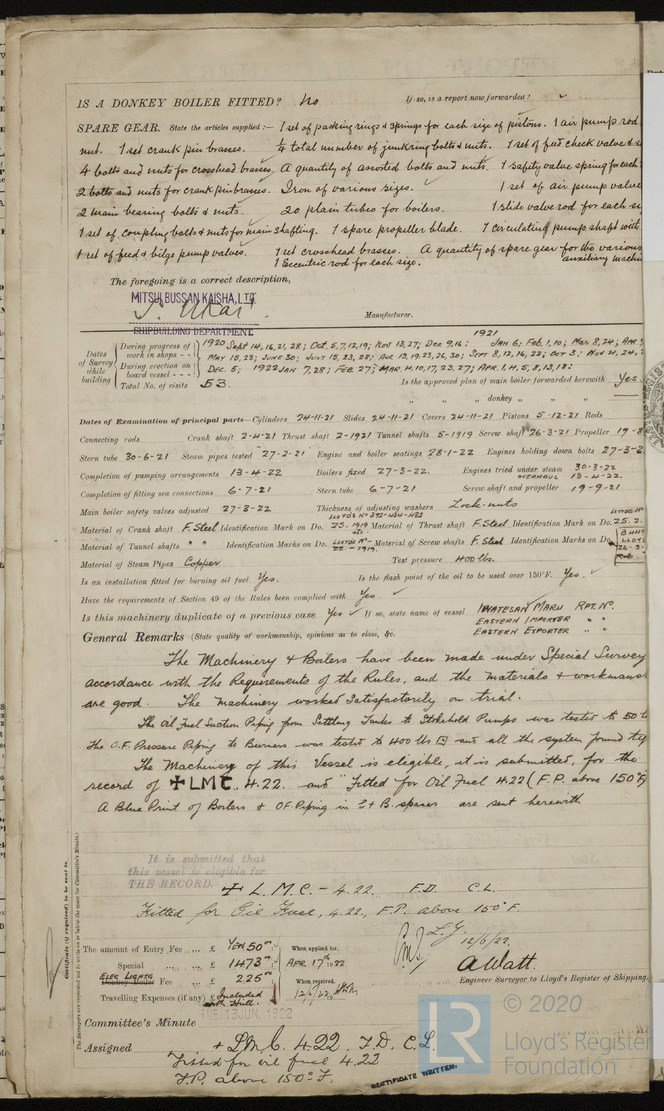 IS A DONKEY BOILER FITTED? No If so, is a report now forwarded? ✓
SPARE GEAR. State the articles supplied:— 1 set of packing rings & springs for each size of pistons. 1 air pump rod
nut. 1 set crank pin brasses. ¼ total number of junkring bolts & nuts. 1 set of feed check valves
4 bolts and nuts for crosshead brasses. A quantity of assorted bolts and nuts. 1 safety valve spring for each
2 bolts and nuts for crank pin brasses. Iron of various sizes. 1 set of air pump valve
2 main bearing bolts & nuts. 20 plain tubes for boilers. 1 slide valve rod for each
1 set of coupling bolts & nuts for main shafting. 1 spare propeller blade. 1 circulating pump shaft with
1 set of feed & bilge pump valves. 1 set crosshead brasses. A quantity of spare gear for the various
1 Eccentric rod for each size. auxiliary machin
The foregoing is a correct description,
MITSUI BUSSAN KAISHA, LTD
Manufacturer.
SHIPBUILDING DEPARTMENT
Dates of Survey while building
During progress of work in shops - - 1920 Sept 14, 16, 21, 28; Oct, 5, 7, 12, 19; Nov 13, 27; Dec 9, 16: 1921 Jan 6; Feb, 1, 10; Mar 8, 24; Apr
During erection on board vessel - - - May 15, 23; June 30; July 15, 23, 28; Aug 13, 19, 23, 26, 30; Sept 8, 12, 16, 22; Oct 3; Nov 21, 24,
Dec. 5; 1922 Jan 7, 28; Feb 27; Mar 14, 10, 17, 23, 27; Apr. 1, 4, 5, 8, 13, 18:
Total No. of visits 53. Is the approved plan of main boiler forwarded herewith Yes.
" " " donkey " " "
Dates of Examination of principal parts—Cylinders 24-11-21 Slides 24-11-21 Covers 24-11-21 Pistons 5-12-21 Rods
Connecting rods Crank shaft 2-4-21 Thrust shaft 2-1921 Tunnel shafts 5-1919 Screw shaft 26-3-21 Propeller 19-8
Stern tube 30-6-21 Steam pipes tested 27-2-21 Engine and boiler seatings 28-1-22 Engines holding down bolts 27-3-2
Completion of pumping arrangements 13-4-22 Boilers fixed 27-3-22. Engines tried under steam 30-3-22
OVERHAUL 18-4-22.
Completion of fitting sea connections 6-7-21 Stern tube 6-7-21 Screw shaft and propeller 19-9-21
Main boiler safety valves adjusted 27-3-22 Thickness of adjusting washers Lock-nuts
Material of Crank shaft F. Steel Identification Mark on Do. Material of Thrust shaft F. Steel Identification Mark on Do.
Material of Tunnel shafts " " Identification Marks on Do. Material of Screw shafts F. Steel Identification Marks on Do.
Material of Steam Pipes Copper Test pressure 400 lbs.
Is an installation fitted for burning oil fuel Yes. Is the flash point of the oil to be used over 150°F. Yes. ✓
Have the requirements of Section 49 of the Rules been complied with Yes. ✓
Is this machinery duplicate of a previous case Yes ✓ If so, state name of vessel IWATESAN MARU RPT. No.
EASTERN IMPORTER " "
EASTERN EXPORTER " "
General Remarks (State quality of workmanship, opinions as to class, &c.
The Machinery & Boilers have been made under Special Survey
accordance with the Requirements of the Rules, and the materials & workmans
are good. The machinery worked satisfactorily on trial.
The Oil Fuel Suction Piping from Settling Tanks to Stokehold Pumps was tested to 50 l
The O.F. Pressure Piping to Burners was tested to 400 lbs and all the system found
The Machinery of this Vessel is eligible, it is submitted, for the
record of ✠ LMC. 4.22. and "Fitted for Oil Fuel 4.22 (F.P. above 150°F)
A Blue Print of Boilers & OF Piping in E & B spaces are sent herewith
It is submitted that
this vessel is eligible for
THE RECORD. + L.M.C. - 4.22. F.D. C.L.
Fitted for Oil Fuel, 4.22, F.P. above 150°F.
12/6/22.
The amount of Entry Fee ... £ Yen 50 When applied for,
Special ... £ 1473 APR. 17th 1922
ELEC LIGHTG
Donkey Boiler Fee ... £ 225 When received,
Travelling Expenses (if any) £ Included with Hull.
A Watt.
Engineer Surveyor to Lloyd's Register of Shipping.
TUE. 13 JUN. 1922
Committee's Minute
Assigned + LMC. 4.22 F.D. C.L.
Fitted for oil fuel 4.22
F.P. above 150°F.
CERTIFICATE WRITTEN.
Certificate (if required) to be sent to
The Surveyors are requested not to write on or below the space for Committee's Minute.
LR
© 2020
Lloyd's Register
Foundation